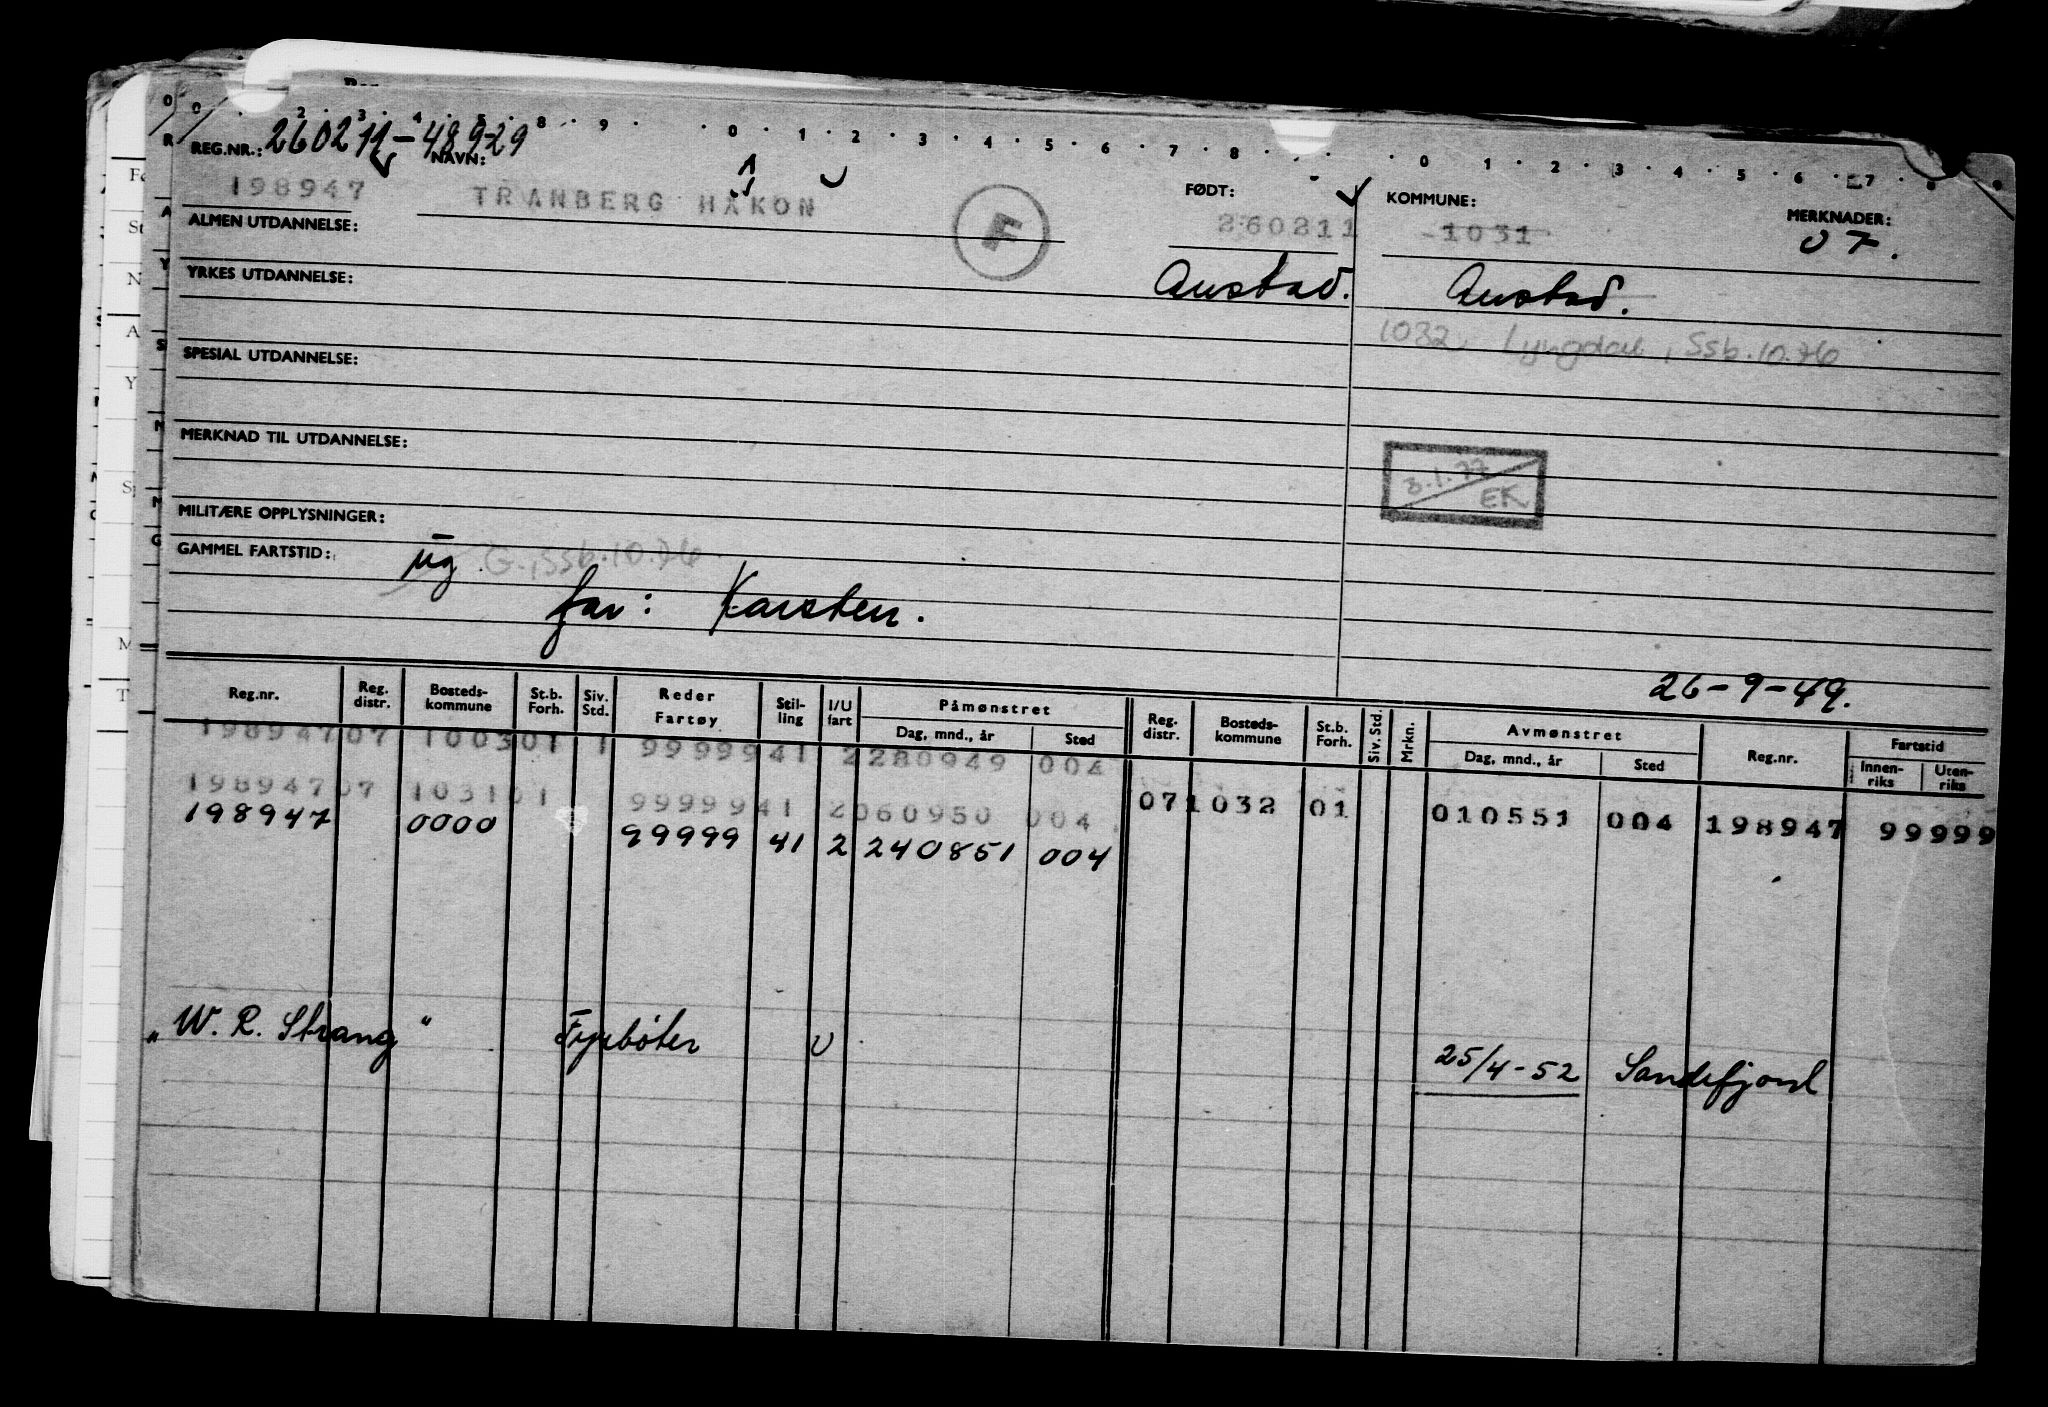 REG.NR.: 260211-48929 NAVN:
198947 TRANBERG HÅKON F FØDT: 260211 KOMMUNE: 1031 MERKNADER: 07.
ALMEN UTDANNELSE:
Austad. Austad.
YRKES UTDANNELSE:
1032 Lyngdal, Ssb.10.76
SPESIAL UTDANNELSE:
MERKNAD TIL UTDANNELSE:
3.1.77
EK
MILITÆRE OPPLYSNINGER:
GAMMEL FARTSTID: ug G., Ssb.10.76
far: Karsten.
26-9-49.
Reg.nr. Reg. distr. Bosteds-kommune St.b. Forh. Siv. Std. Reder Fartøy Stil-ling I/U fart Påmønstret Dag, mnd., år Sted Reg. distr. Bosteds-kommune St.b. Forh. Siv. Std. Mrkn. Avmønstret Dag, mnd., år Sted Reg.nr. Fartstid Innen-riks Uten-riks
198947 07 1003 01 1 99999 41 2 280949 004
198947 07 1031 01 99999 41 2 060950 004 07 1032 01 010551 004 198947 99999
198947 0000 99999 41 2 240851 004
"W. R. Strang" Fyrbøter U 25/4-52 Sandefjord